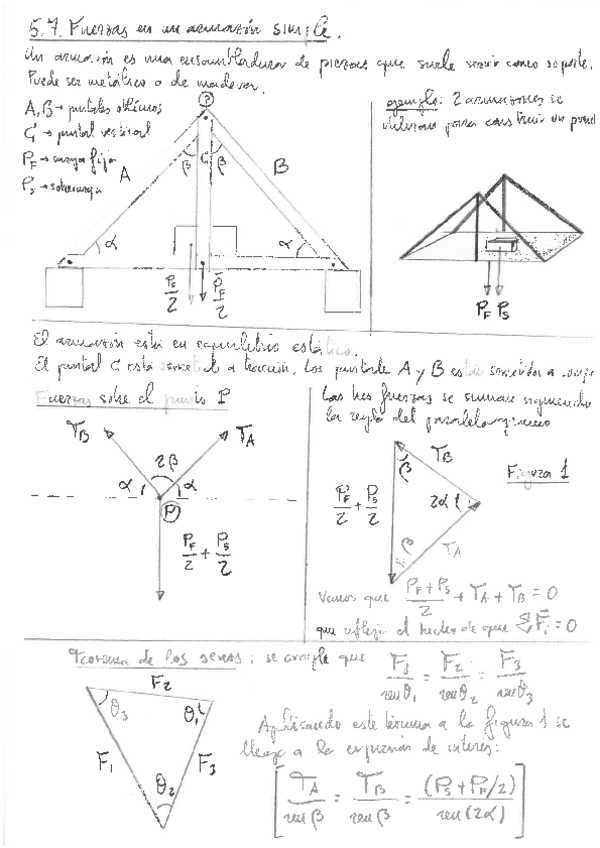 5.7. Fuerzas en un armazón simple.
Un armazón es una ensambladura de piezas que suele servir como soporte.
Puede ser metálico o de madera.
A, B → puntales oblicuos
C → puntal vertical
P_F → carga fija
P_S → sobrecarga
P
A
B
C
β β
α α
P_S/2 P_F/2
ejemplo: 2 armazones se
utilizan para construir un
P_F P_S
El armazón está en equilibrio estático.
El puntal C está sometido a tracción, los puntales A y B están sometidos a
Fuerzas sobre el punto P
T_B T_A
2β
α α
P
P_F/2 + P_S/2
Las tres fuerzas se suman siguiendo
la regla del paralelogramo
Figura 1
T_B
β
P_F/2 + P_S/2
2α
β
T_A
Vemos que (P_F + P_S)/2 + T_A + T_B = 0
que refleja el hecho de que Σ F_i = 0
Teorema de los senos: se cumple que F_1/sen θ_1 = F_2/sen θ_2 = F_3/sen θ_3
F_2
θ_3 θ_1
F_1 F_3
θ_2
Aplicando este teorema a la figura 1 se
llega a la expresión de interés:
[T_A/sen β = T_B/sen β = (P_S + P_F/2)/sen(2α)]